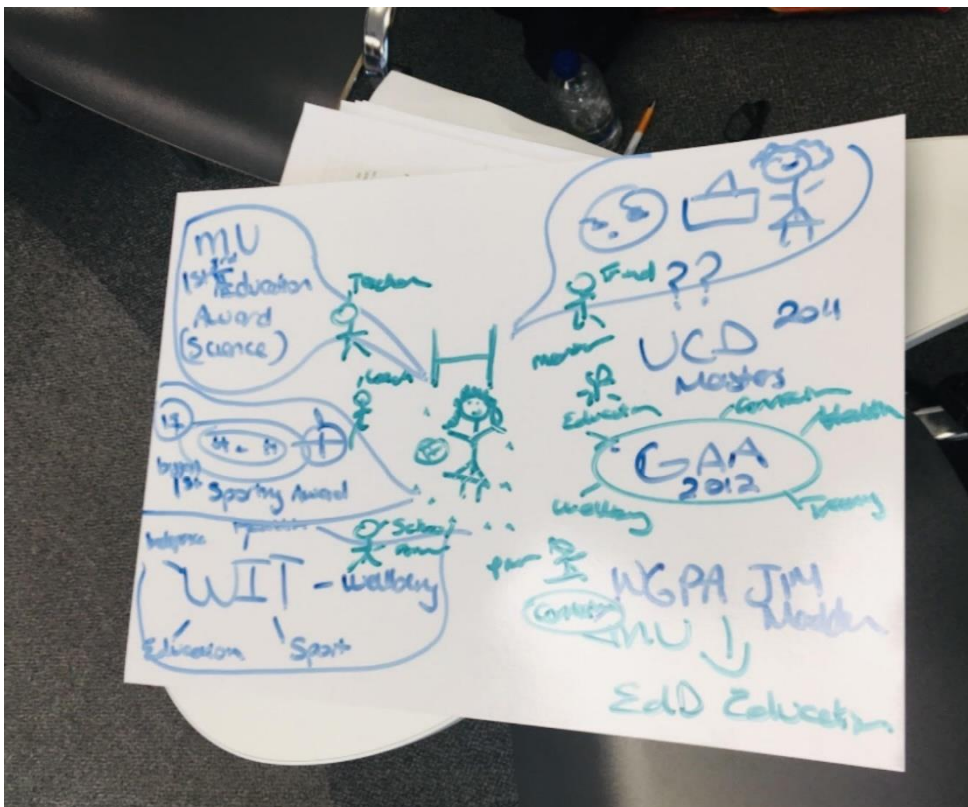 MU
1st
Education
Award
(Science)
Teacher
Coach
17
1st Sporting Award
WIT - Wellbeing
Education Sport
School
Friend
??
mentor
UCD 2011
Masters
Education
Connection
Health
GAA
2012
Wellbeing
WGPA JIM
Madden
MU
EdD Education